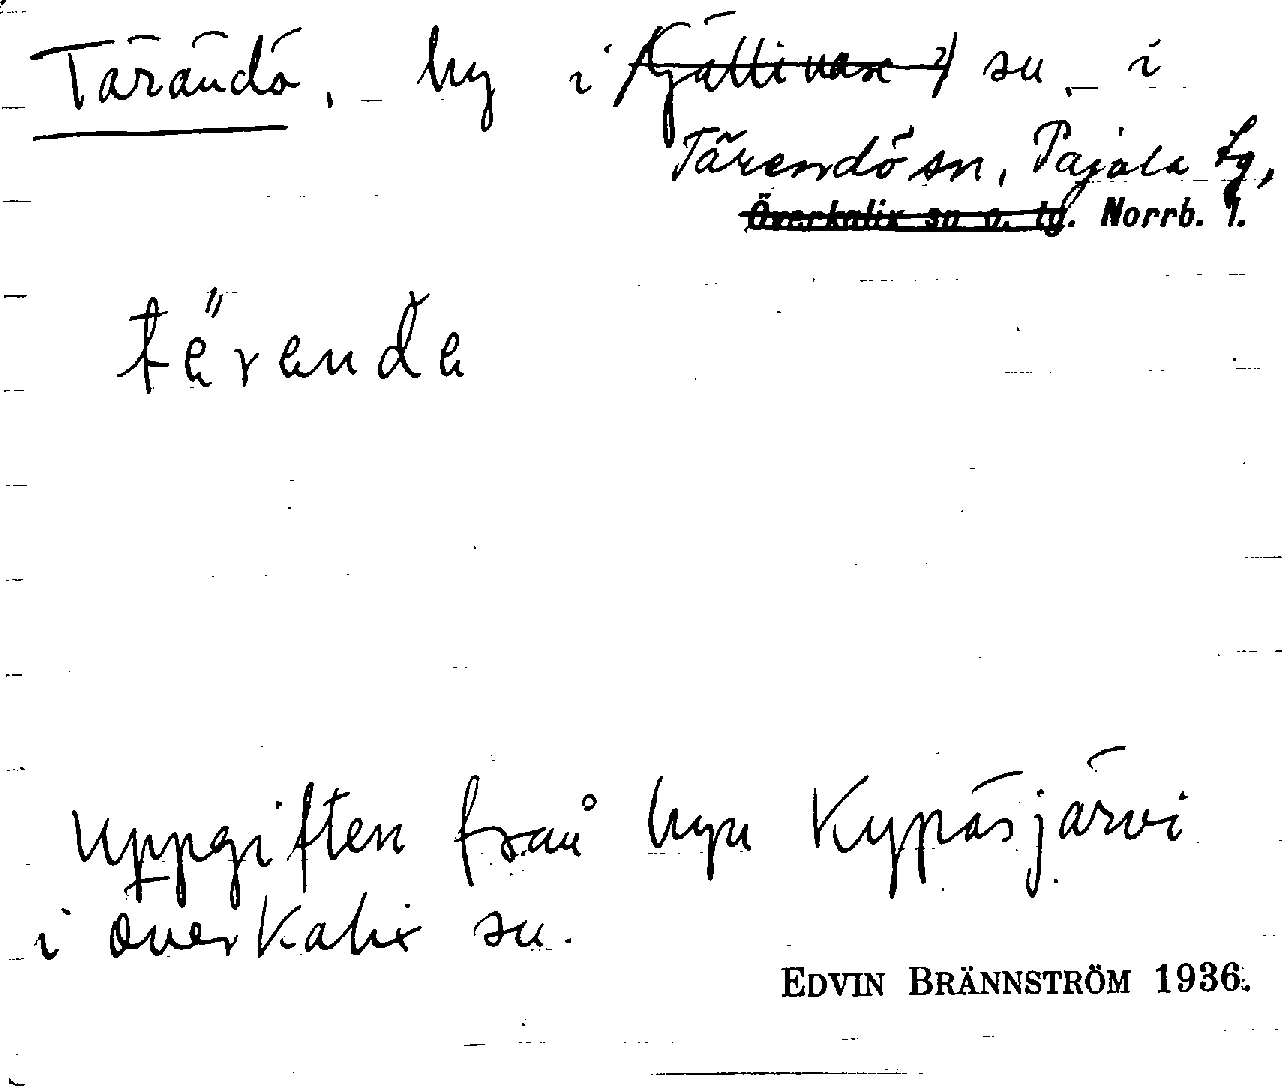 Tärändö, by i (Gällivare ?) sn i
Tärendö sn, Pajala tg,
Överkalix sn o. tg. Norrb. l.
tärenda
Uppgiften från byn Kypäsjärvi
i överkalix sn.
EDVIN BRÄNNSTRÖM 1936.